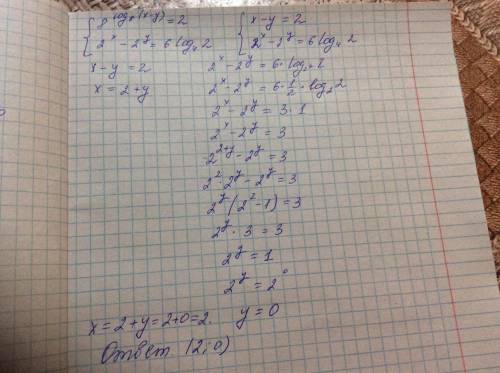 { 8^log₈(x-y) = 2   { x-y = 2
{ 2^x - 2^y = 6 log₄ 2   { 2^x - 2^y = 6 log₄ 2
x-y = 2   2^x - 2^y = 6 · log₂² 2
x = 2+y   2^x - 2^y = 6 · 1/2 · log₂ 2
2^x - 2^y = 3 · 1
2^x - 2^y = 3
2^(2+y) - 2^y = 3
2² · 2^y - 2^y = 3
2^y (2² - 1) = 3
2^y · 3 = 3
2^y = 1
2^y = 2⁰
x = 2+y = 2+0 = 2.   y = 0
Ответ (2; 0)